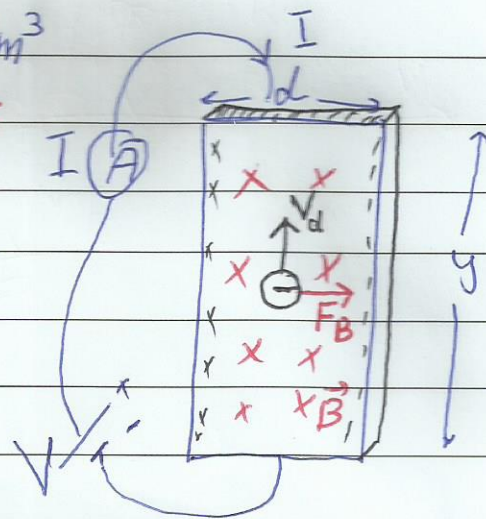 m³
I
d
I A
V_d
y
F_B
B⃗
V